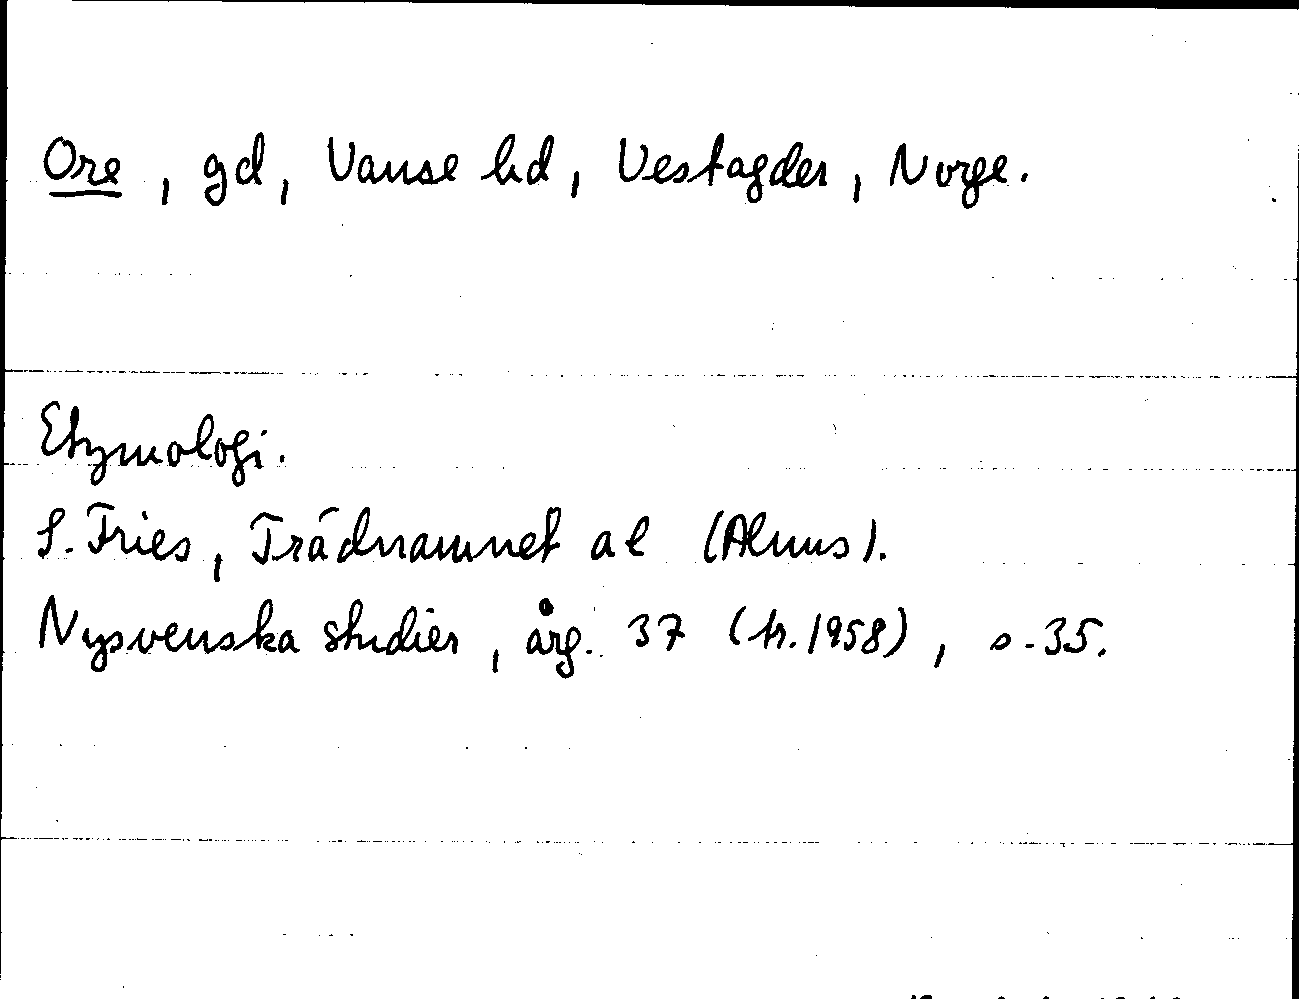 Ore, gd, Vanse hd, Vestagder, Norge.
Etymologi.
S. Fries, Trädnamnet al (Alnus).
Nysvenska studier, årg. 37 (tr. 1958), s. 35.